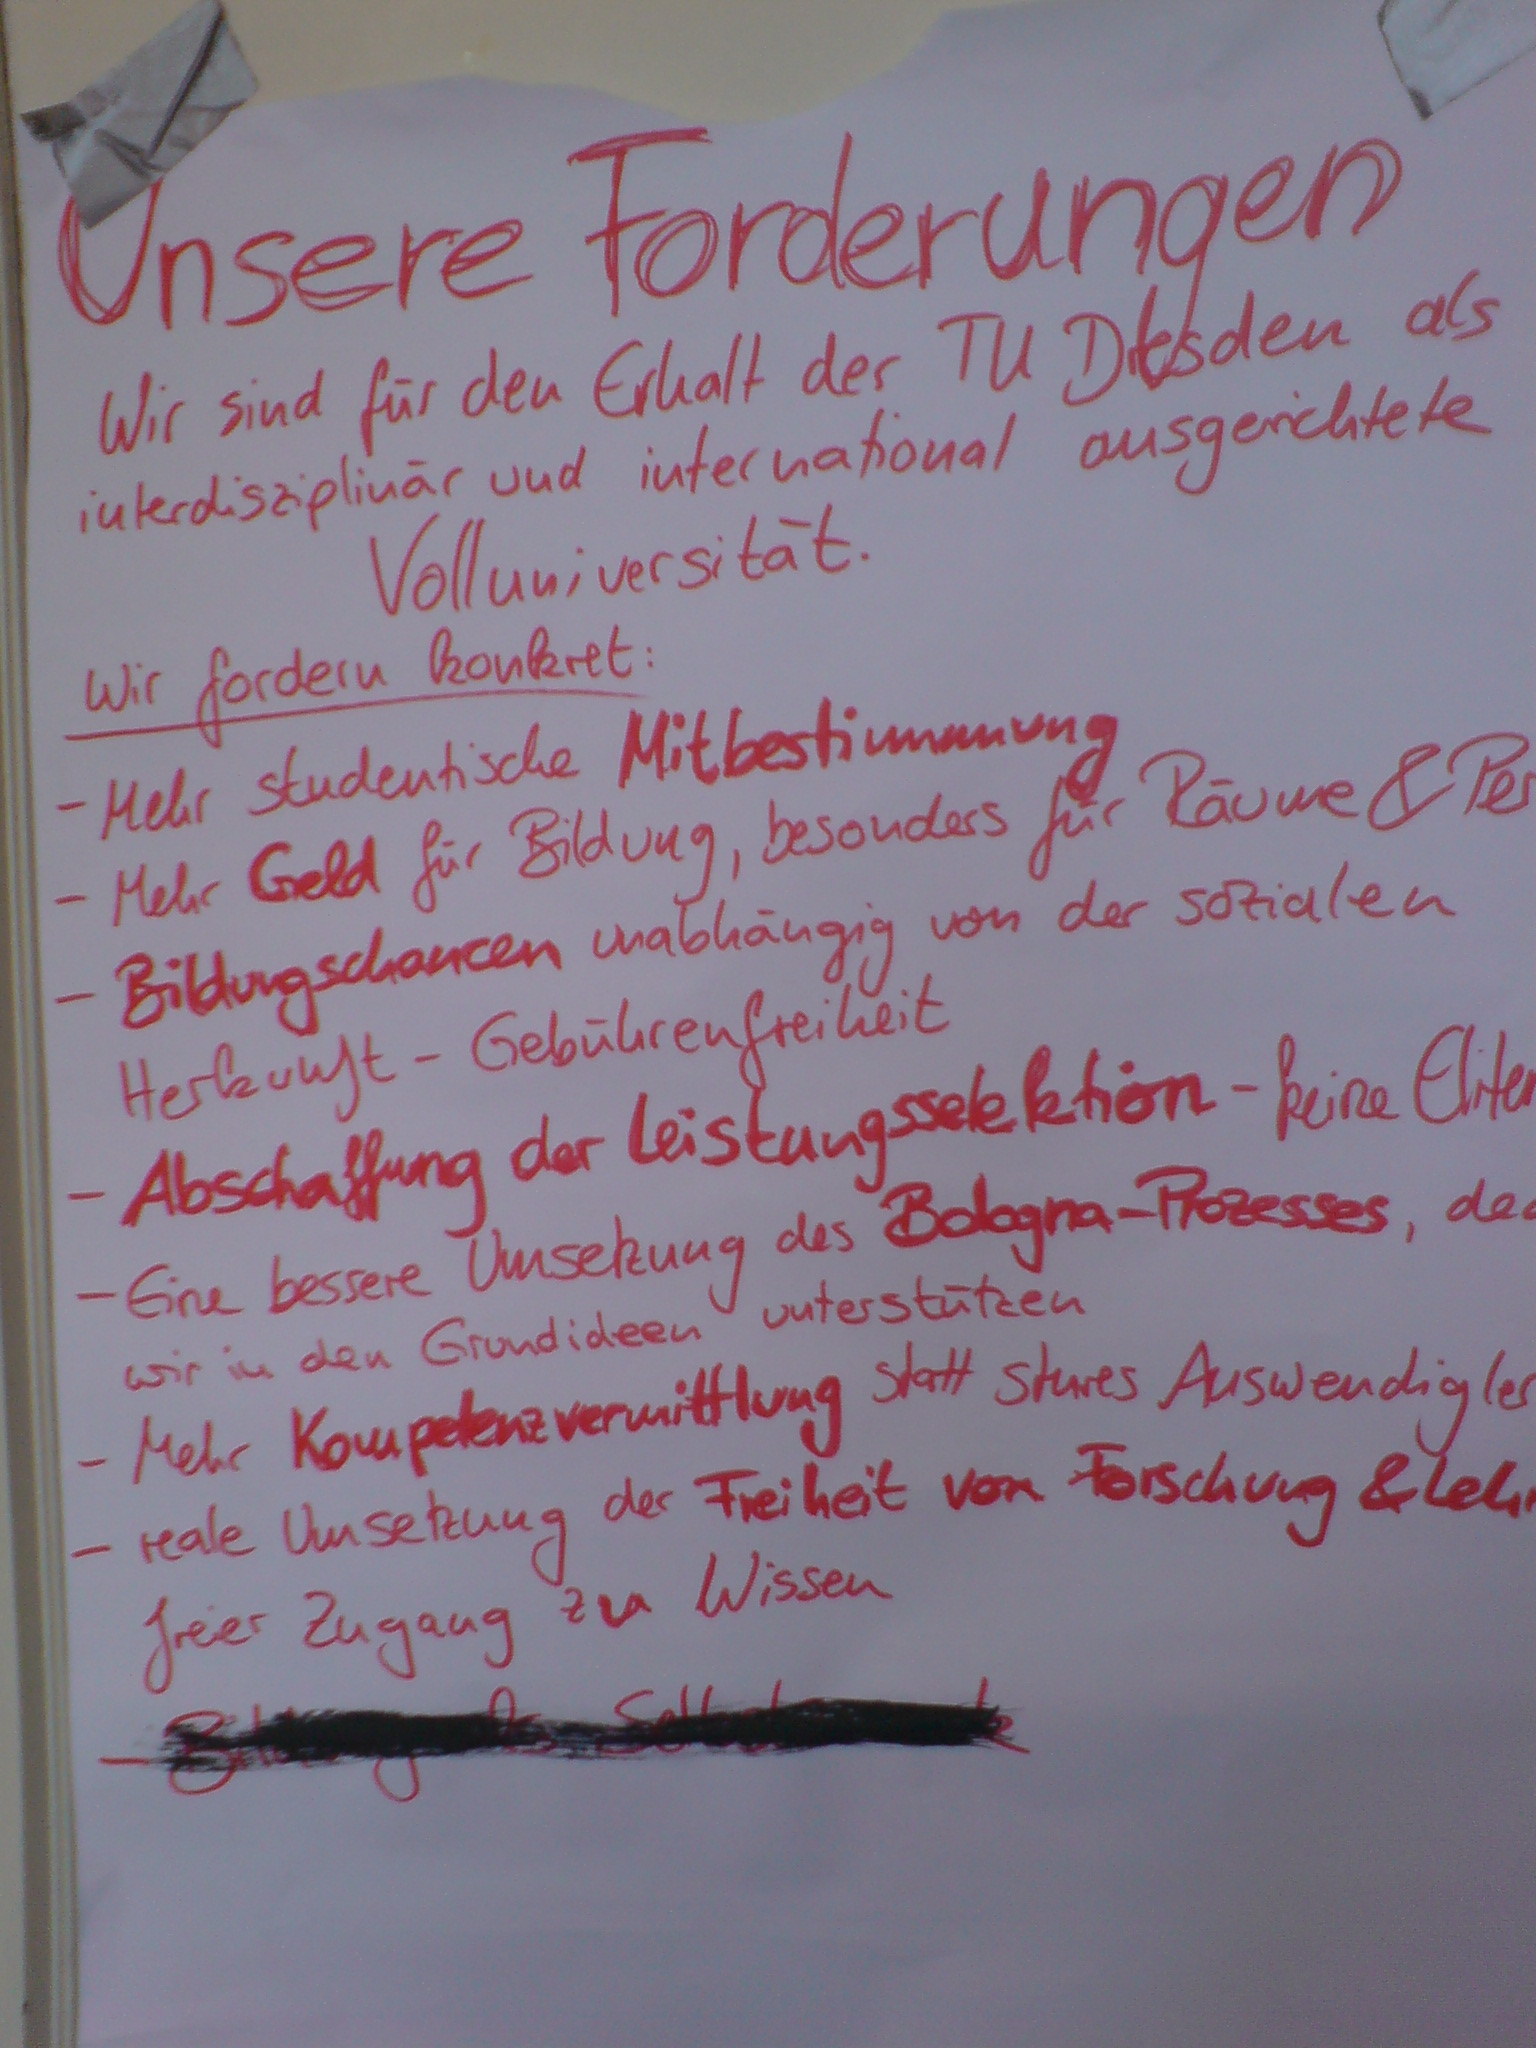 Unsere Forderungen
Wir sind für den Erhalt der TU Dresden als
interdisziplinär und international ausgerichtete
Volluniversität.
Wir fordern konkret:
- Mehr studentische Mitbestimmung
- Mehr Geld für Bildung, besonders für Räume & Per
- Bildungschancen unabhängig von der sozialen
Herkunft - Gebührenfreiheit
- Abschaffung der Leistungsselektion - keine Eliten
- Eine bessere Umsetzung des Bologna-Prozesses, den
wir in den Grundideen unterstützen
- Mehr Kompetenzvermittlung statt stures Auswendigler
- reale Umsetzung der Freiheit von Forschung & Lehr
freier Zugang zu Wissen